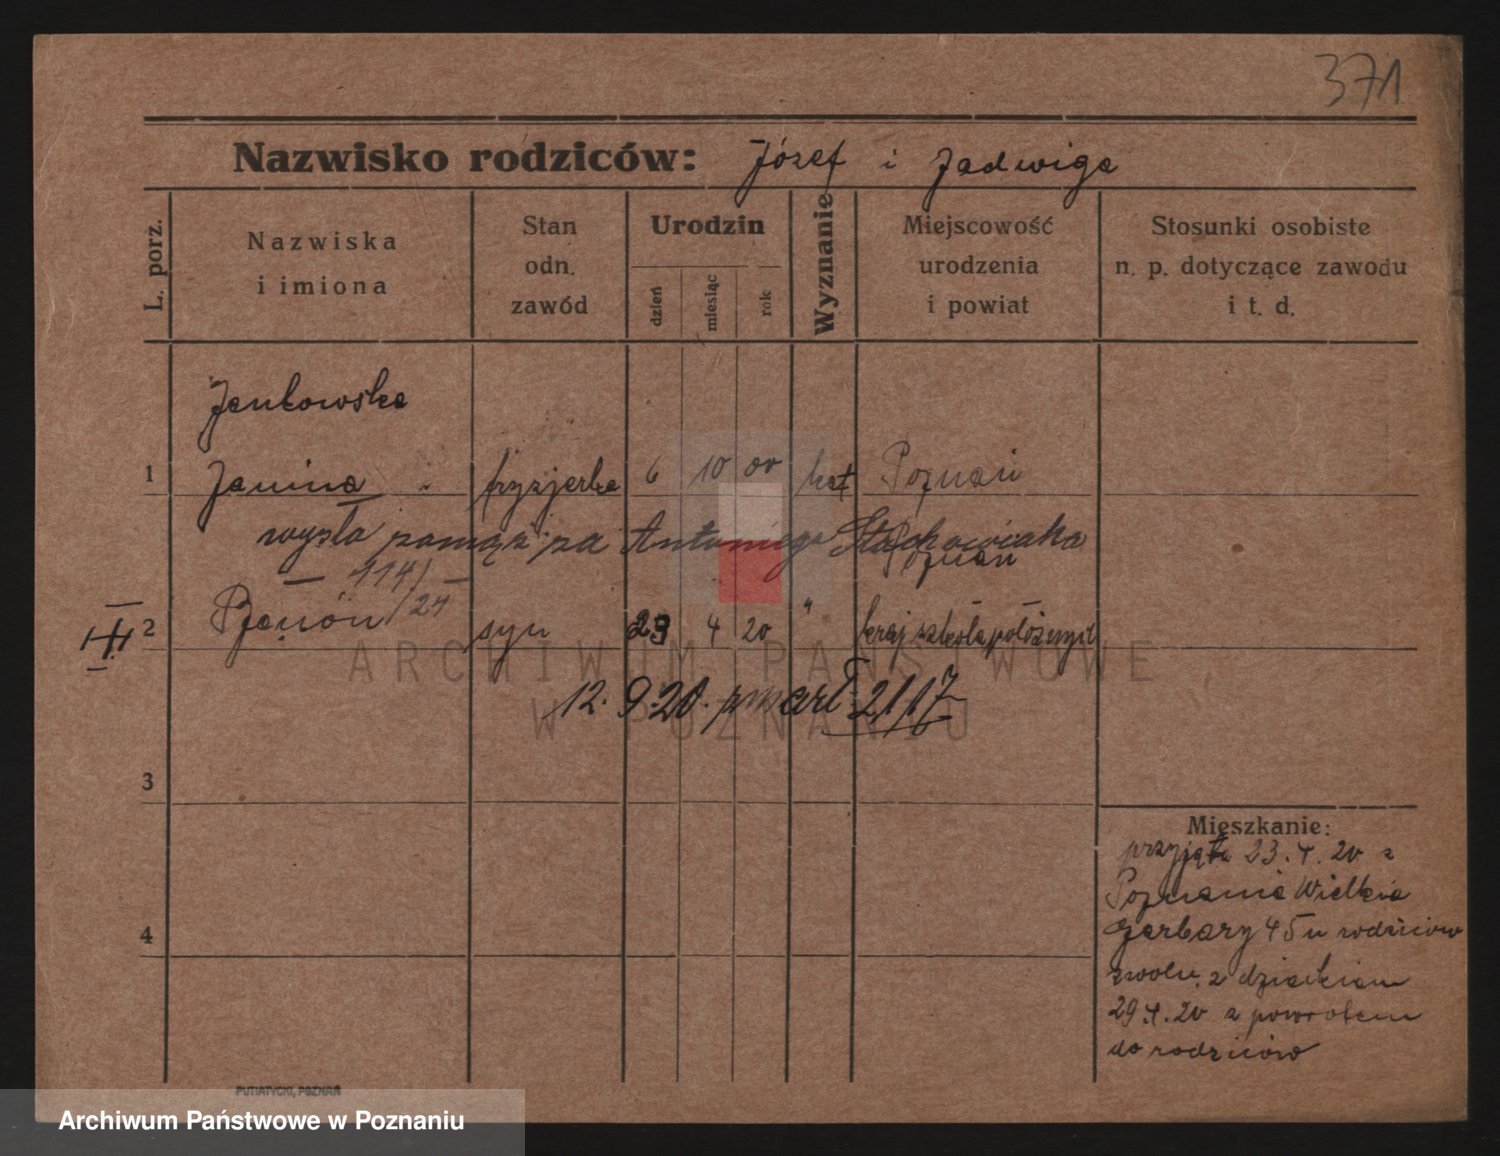 371
Nazwisko rodziców: Józef i Jadwiga
L. porz.
Nazwiska i imiona
Stan odn. zawód
Urodzin
dzień
miesiąc
rok
Wyznanie
Miejscowość urodzenia i powiat
Stosunki osobiste n. p. dotyczące zawodu i t. d.
Jankowska
1 Janina fryzjerka 6 10 00 kat Poznań
wyszła zamąż za Antoniego Stachowiaka
114/24
Poznań
2 Zenon syn 23 4 20 " kraj. szkoła położnych
12. 9. 20. zmarł 2117
3
4
Mieszkanie:
przyjęta 23.4.20 z
Poznania Wielkie
Garbary 45 u rodziców
zwoln. z dzieckiem
29.4.20 z powrotem
do rodziców
PUTIATYCKI, POZNAŃ
ARCHIWUM PAŃSTWOWE
W POZNANIU
Archiwum Państwowe w Poznaniu